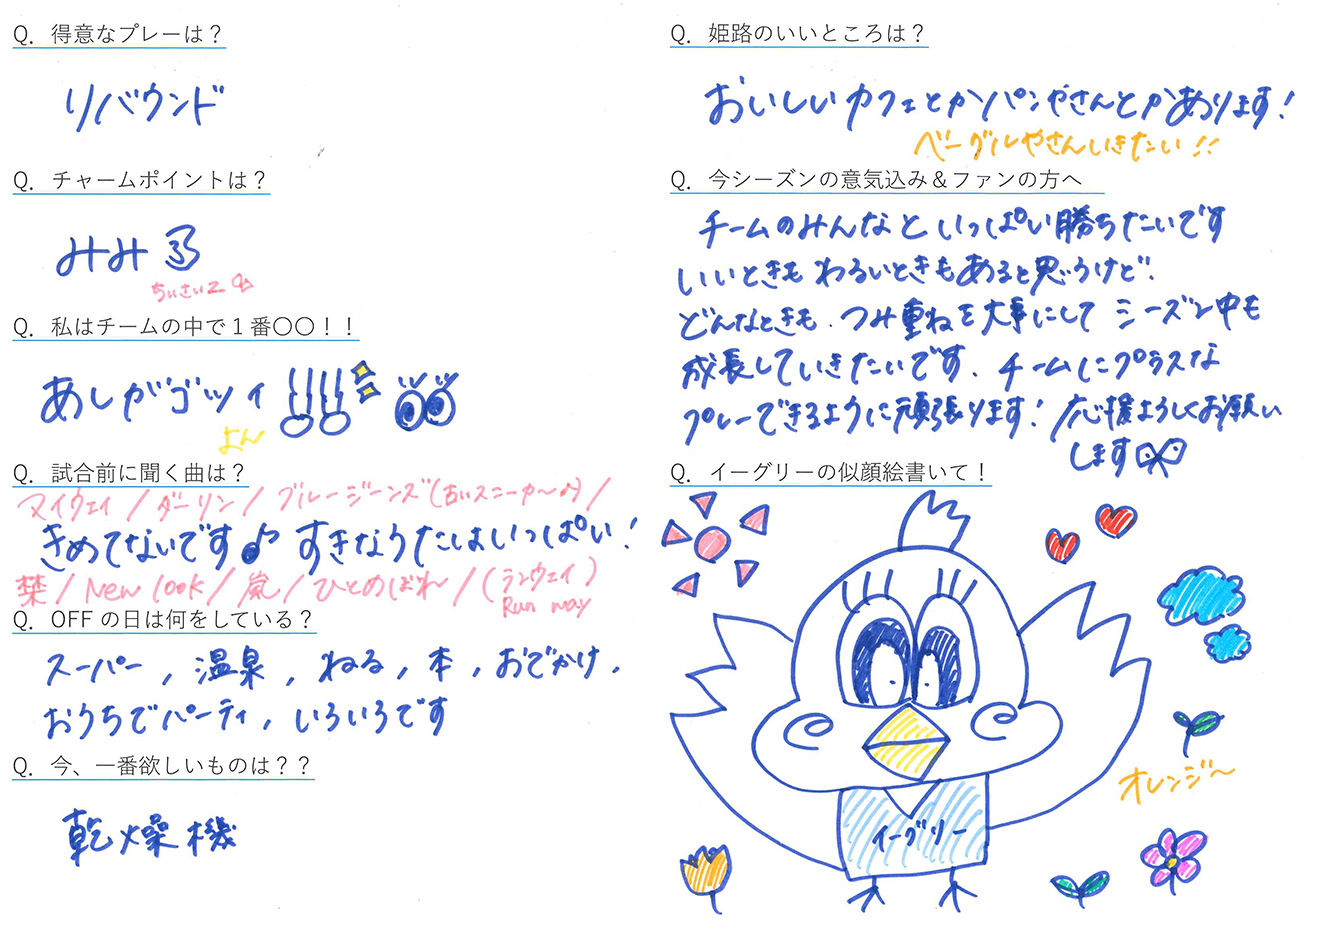 Q. 得意なプレーは？
リバウンド
Q. チャームポイントは？
みみ
ちいさい
Q. 私はチームの中で１番〇〇！！
あしがゴツイ
よん
Q. 試合前に聞く曲は？
マイウェイ / ダーリン / ブルージーンズ(古いスニーカ〜♪) /
きめてないです♪ すきなうたはいっぱい！
禁 / New look / 嵐 / ひとめぼれ / (ランウェイ)
Run way
Q. OFFの日は何をしている？
スーパー, 温泉, ねる, 本, おでかけ,
おうちでパーティ, いろいろです
Q. 今、一番欲しいものは？？
乾燥機
Q. 姫路のいいところは？
おいしいカフェとかパンやさんとかあります！
ベーグルやさんいきたい!!
Q. 今シーズンの意気込み＆ファンの方へ
チームのみんなといっぱい勝ちたいです
いいときもわるいときもあると思うけど、
どんなときも、つみ重ねを大事にしてシーズン中も
成長していきたいです、チームにプラスな
プレーできるように頑張ります！応援よろしくお願い
します
Q. イーグリーの似顔絵書いて！
イーグリー
オレンジ〜